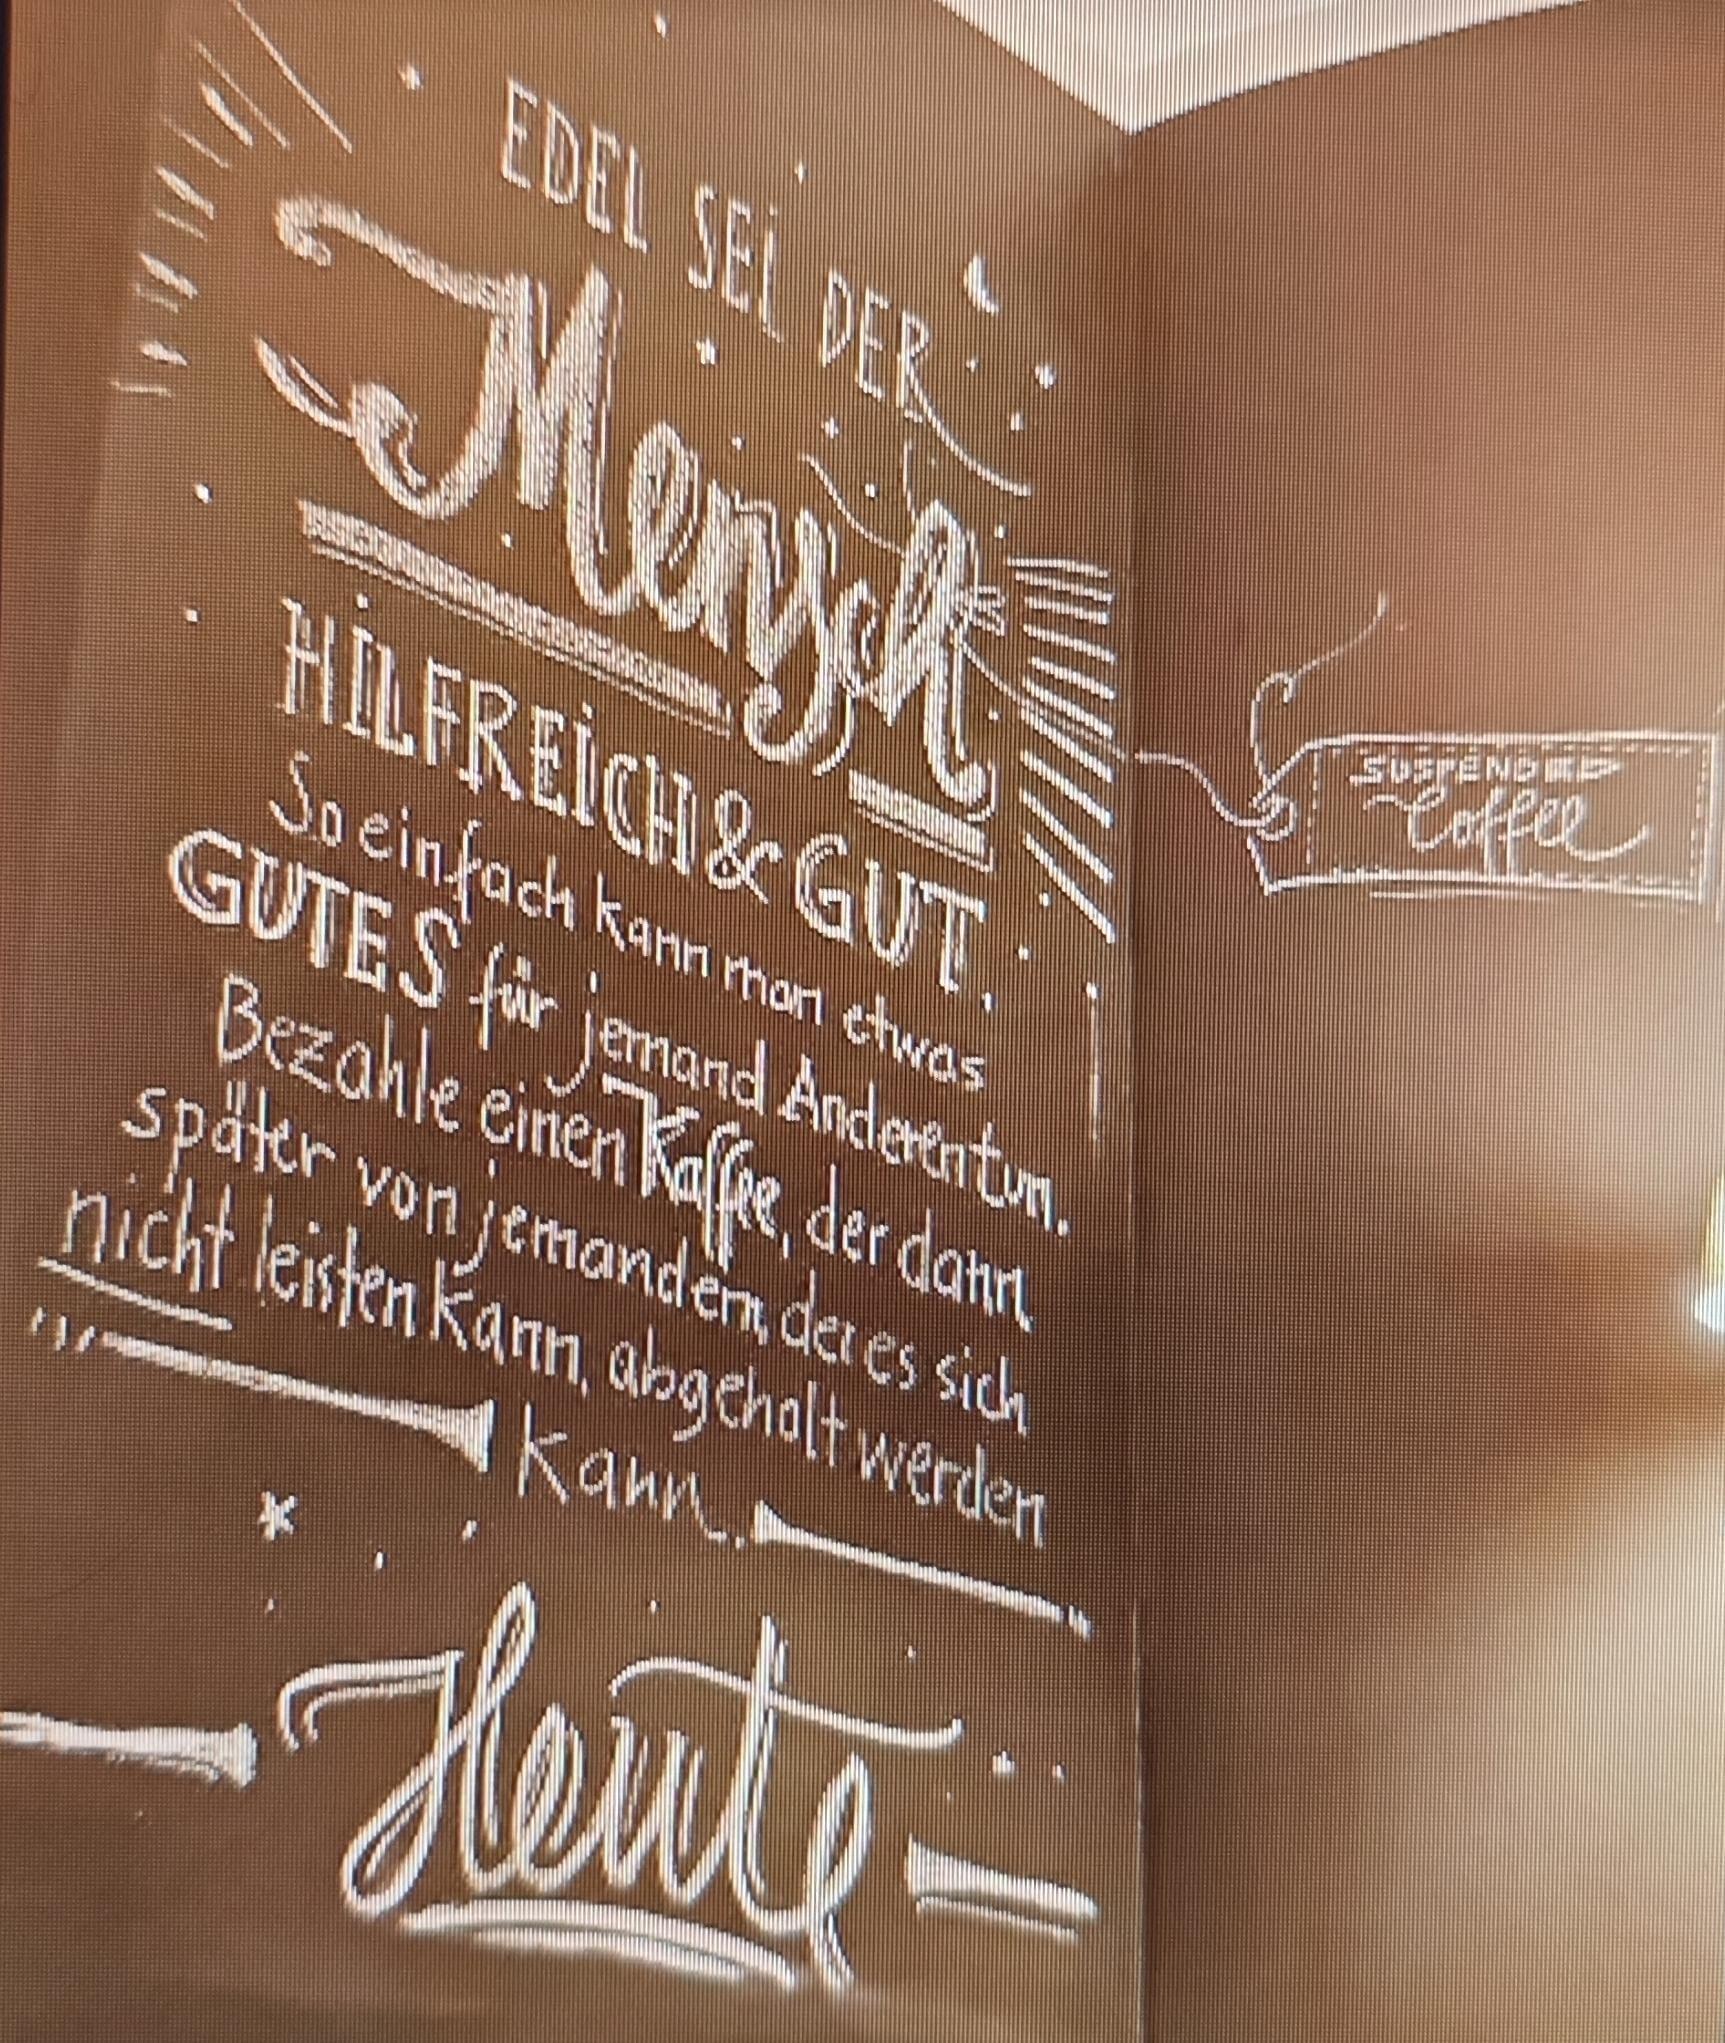 EDEL SEI DER
Mensch
HILFREICH & GUT.
So einfach kann man etwas
GUTES für jemand Anderen tun.
Bezahle einen Kaffee, der dann
später von jemandem, der es sich
nicht leisten kann, abgeholt werden
kann.
Heute
SUSPENDED
Coffee